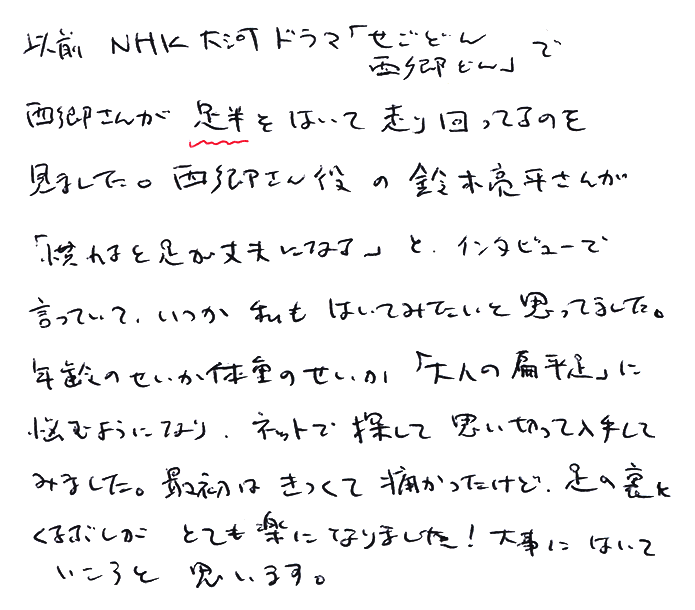 以前 NHK大河ドラマ「せごどん
西郷どん」で
西郷さんが 足半をはいて走り回ってるのを
見ました。西郷さん役の鈴木亮平さんが
「慣れると足が丈夫になる」と、インタビューで
言っていて、いつか私もはいてみたいと思ってました。
年齢のせいか体重のせいか「大人の扁平足」に
悩むようになり、ネットで探して思い切って入手して
みました。最初はきつくて痛かったけど、足の裏と
くるぶしがとても楽になりました!大事にはいて
いころと思います。